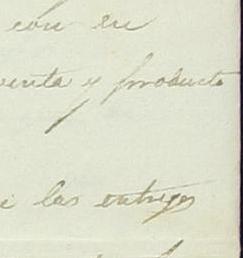 con su
venta y producto
las entregas